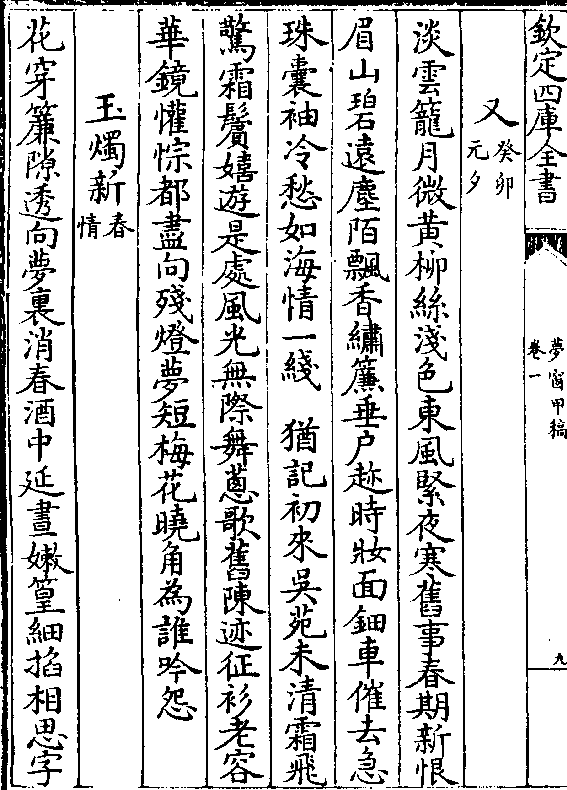 欽定四庫全書
夢窗甲稿
卷一
九
又 癸卯元夕
淡雲籠月微黄柳絲淺色東風緊夜寒舊事春期新恨
眉山碧遠塵陌飄香繡簾垂户趂時妝面鈿車催去急
珠囊袖冷愁如海情一綫　猶記初來吳苑未清霜飛
驚霜鬢嬉遊是處風光無際舞蔥歌舊陳迹征衫老容
華鏡懽悰都盡向殘燈夢短梅花曉角為誰吟怨
玉燭新 春情
花穿簾隙透向夢裏消春酒中延晝嫩篁細掐相思字